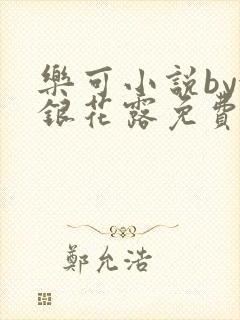 樂可小説by
銀花露免費
鄭允浩